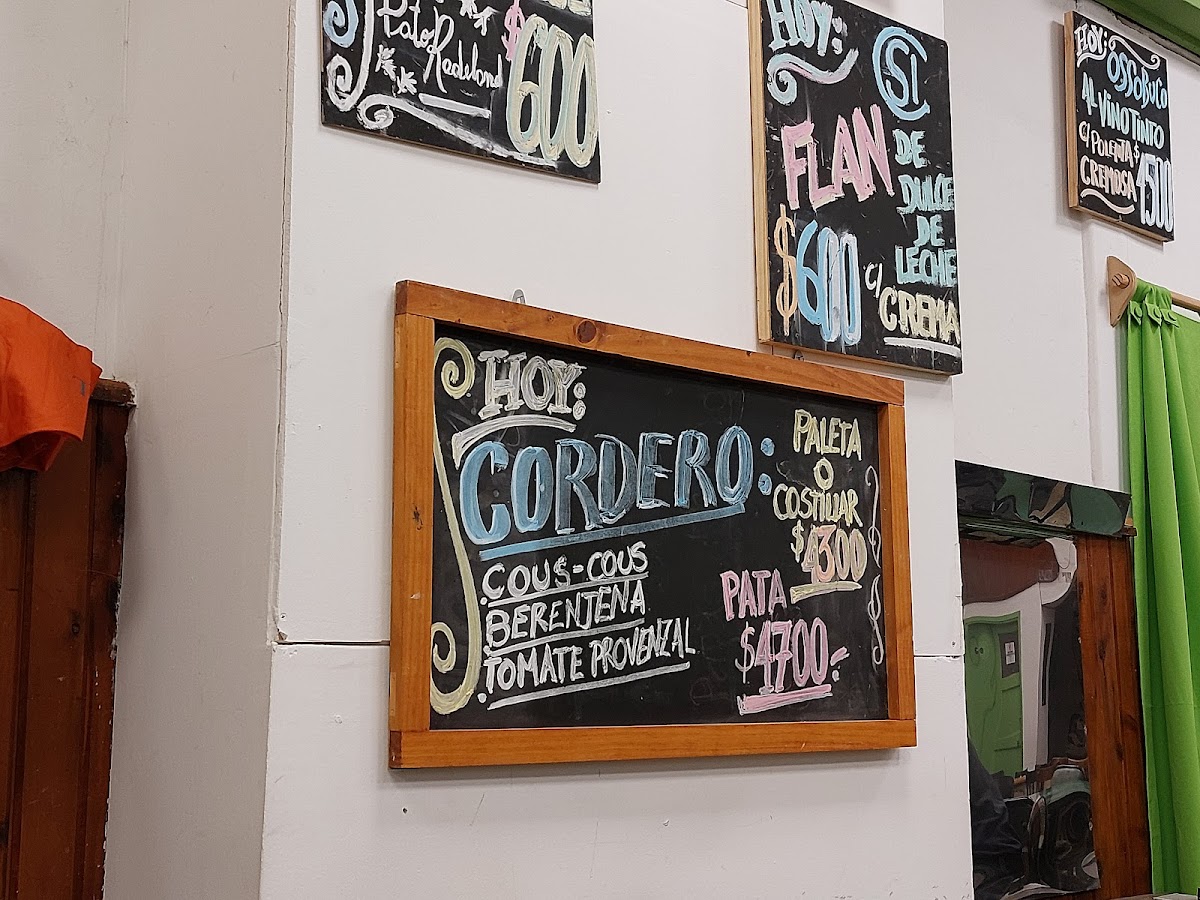 Pato Redeland
$600
HOY:
CSI
FLAN
DE
DULCE
DE
LECHE
$600
C/
CREMA
HOY: OSSOBUCO
AL VINO TINTO
C/ POLENTA
CREMOSA
$1500
HOY:
CORDERO:
.COUS-COUS
.BERENJENA
.TOMATE PROVENZAL
PALETA
O
COSTILLAR
$4300
PATA
$4700.-